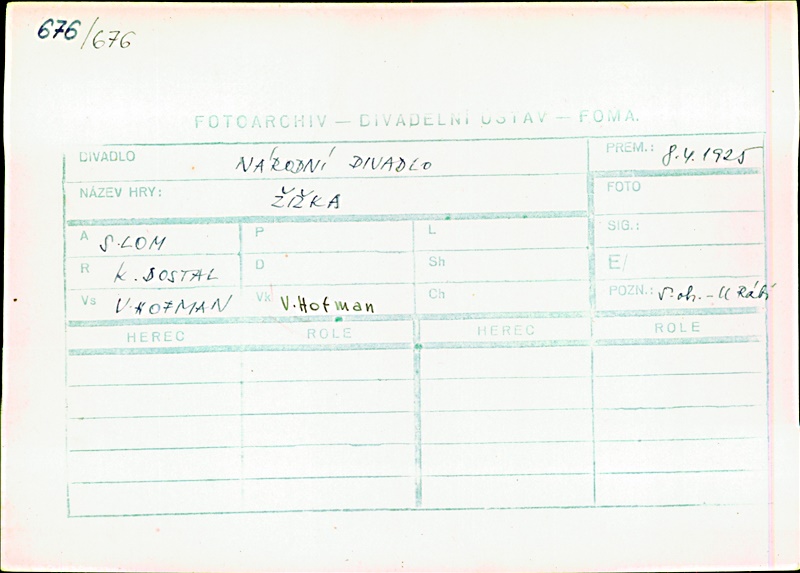 676/676
FOTOARCHIV — DIVADELNÍ ÚSTAV — FOMA.
DIVADLO NÁRODNÍ DIVADLO PREM.: 8.4.1925
NÁZEV HRY: ŽIŽKA FOTO
A S.LOM P L SIG.:
R K.DOSTAL D Sh E/
Vs V.HOFMAN Vk V.Hofman Ch POZN.: U Rábí
HEREC ROLE HEREC ROLE